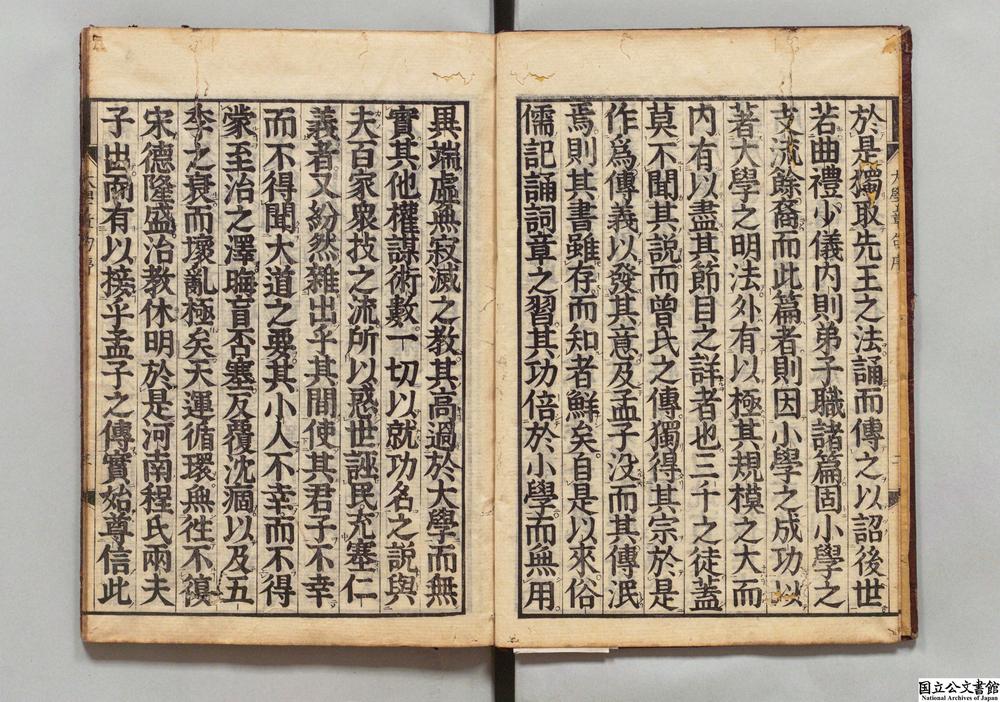 於是獨取先王之法誦而傳之以詔後世
若曲禮少儀内則弟子職諸篇固小學之
支流餘裔而此篇者則因小學之成功以
著大學之明法外有以極其規模之大而
内有以盡其節目之詳者也三千之徒蓋
莫不聞其說而曾氏之傳獨得其宗於是
作爲傳義以發其意及孟子没而其傳泯
焉則其書雖存而知者鮮矣自是以來俗
儒記誦詞章之習其功倍於小學而無用
異端虛無寂滅之教其高過於大學而無
實其他權謀術數一切以就功名之說與
夫百家衆技之流所以惑世誣民充塞仁
義者又紛然雜出乎其間使其君子不幸
而不得聞大道之要其小人不幸而不得
蒙至治之澤晦盲否塞反覆沈痼以及五
季之衰而壞亂極矣天運循環無徃不復
宋德隆盛治教休明於是河南程氏兩夫
子出而有以接乎孟子之傳實始尊信此
大學章句序
国立公文書館
National Archives of Japan